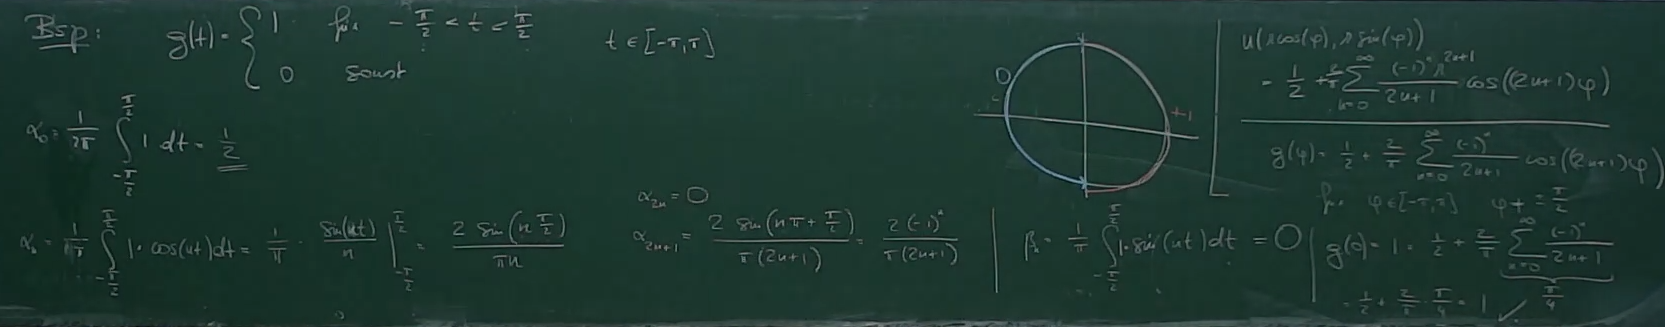 Bsp: g(t) = { 1 für -π/2 < t < π/2
0 sonst
t ∈ [-π, π]
α₀ = 1/2π ∫_{-π/2}^{π/2} 1 dt = 1/2
αₙ = 1/π ∫_{-π/2}^{π/2} 1·cos(nt) dt = 1/π · sin(nt)/n |_{-π/2}^{π/2} = 2 sin(n π/2) / πn
α_{2n} = 0
α_{2n+1} = 2 sin(nπ + π/2) / π(2n+1) = 2(-1)ⁿ / π(2n+1)
0
+1
βₙ = 1/π ∫_{-π/2}^{π/2} 1·sin(nt) dt = 0
u(r cos(φ), r sin(φ))
= 1/2 + 2/π ∑_{n=0}^{∞} (-1)ⁿ r^{2n+1} / 2n+1 cos((2n+1)φ)
g(φ) = 1/2 + 2/π ∑_{n=0}^{∞} (-1)ⁿ / 2n+1 cos((2n+1)φ)
für φ ∈ [-π, π] φ ≠ ± π/2
g(0) = 1 = 1/2 + 2/π ∑_{n=0}^{∞} (-1)ⁿ / 2n+1
π/4
= 1/2 + 2/π · π/4 = 1 ✓